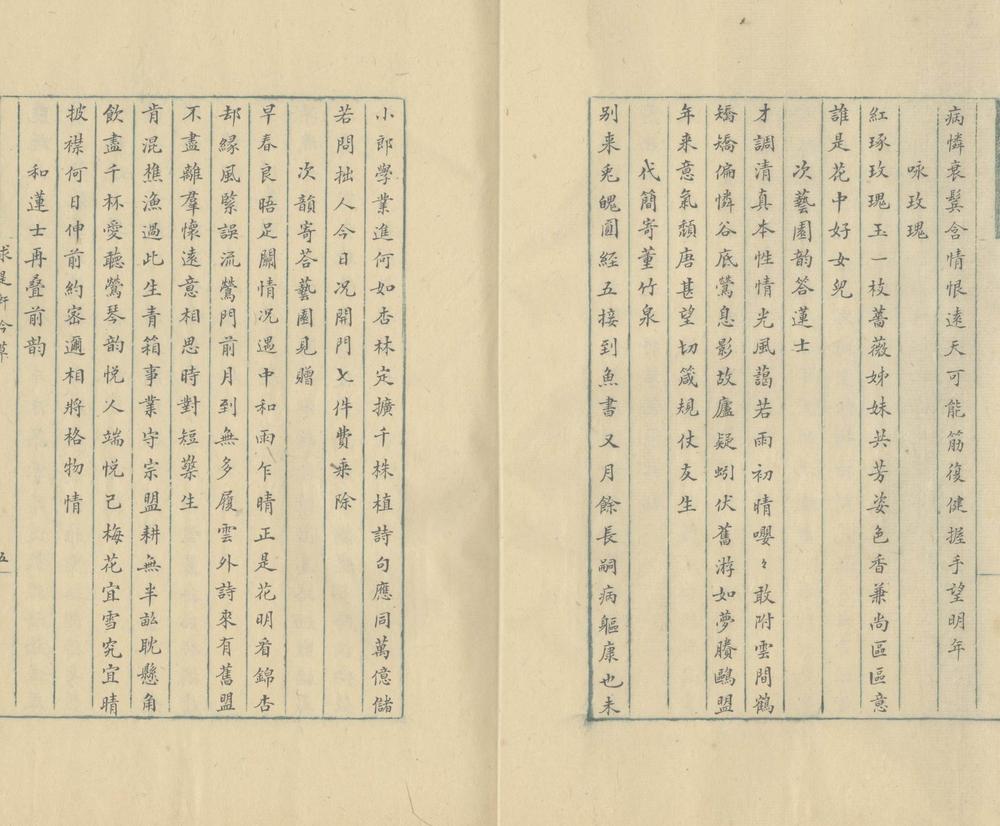 病憐衰鬂含情恨遠天可能筋復健握手望明年
咏玫瑰
紅琢玫瑰玉一枝薔薇姊妹共芳姿色香兼尚區區意
誰是花中好女兒
次藝園韵答蓮士
才調清真本性情光風藹若雨初晴嚶々敢附雲間鶴
矯矯偏憐谷底鶯息影故廬疑蚓伏舊游如夢賸鷗盟
年来意氣頽唐甚望切箴規仗友生
代簡寄董竹泉
别来兎魄圓經五接到魚書又月餘長嗣病軀康也未
小郎學業進何如杏林定擴千株植詩句應同萬億儲
若問拙人今日况開門七件費乘除
次韻寄答藝園見贈
早春良晤足關情况遇中和雨乍晴正是花明看錦杏
却緣風緊誤流鶯門前月到無多履雲外詩來有舊盟
不盡離羣懷遠意相思時對短檠生
肯混樵漁過此生青箱事業守宗盟耕無半畝耽懸角
飲盡千杯愛聽鶯琴韵悦人端悦己梅花宜雪究宜晴
披襟何日伸前約密邇相將格物情
和蓮士再叠前韵
求是軒吟草
五